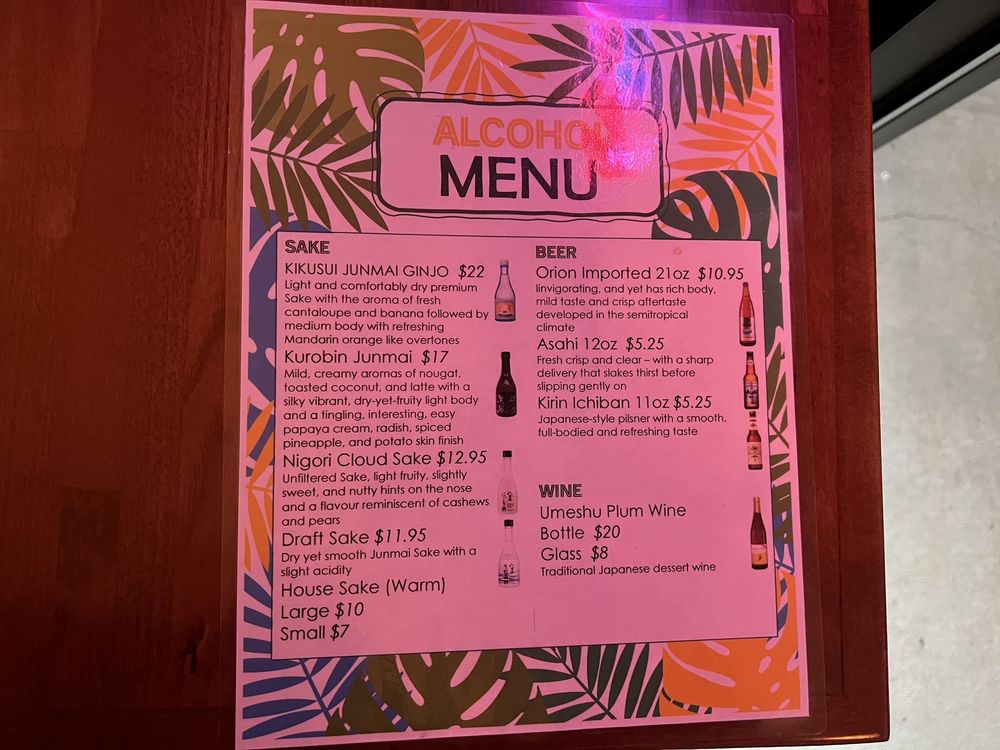 ALCOHOL
MENU
SAKE
KIKUSUI JUNMAI GINJO $22
Light and comfortably dry premium
Sake with the aroma of fresh
cantaloupe and banana followed by
medium body with refreshing
Mandarin orange like overtones
Kurobin Junmai $17
Mild, creamy aromas of nougat,
toasted coconut, and latte with a
silky vibrant, dry-yet-fruity light body
and a tingling, interesting, easy
papaya cream, radish, spiced
pineapple, and potato skin finish
Nigori Cloud Sake $12.95
Unfiltered Sake, light fruity, slightly
sweet, and nutty hints on the nose
and a flavour reminiscent of cashews
and pears
Draft Sake $11.95
Dry yet smooth Junmai Sake with a
slight acidity
House Sake (Warm)
Large $10
Small $7
BEER
Orion Imported 21oz $10.95
Iinvigorating, and yet has rich body,
mild taste and crisp aftertaste
developed in the semitropical
climate
Asahi 12oz $5.25
Fresh crisp and clear – with a sharp
delivery that slakes thirst before
slipping gently on
Kirin Ichiban 11oz $5.25
Japanese-style pilsner with a smooth,
full-bodied and refreshing taste
WINE
Umeshu Plum Wine
Bottle $20
Glass $8
Traditional Japanese dessert wine